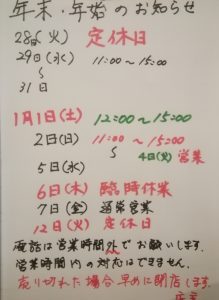 年末・年始のお知らせ
28日(火) 定休日
29日(水) 11:00〜15:00
〜
31日
1月1日(土) 12:00〜15:00
2日(日) 11:00〜15:00
〜 4日(火)営業
5日(水)
6日(木) 臨時休業
7日(金) 通常営業
12日(火) 定休日
電話は営業時間外でお願いします。
営業時間内の対応はできません。
売り切れた場合早めに閉店します。
店主